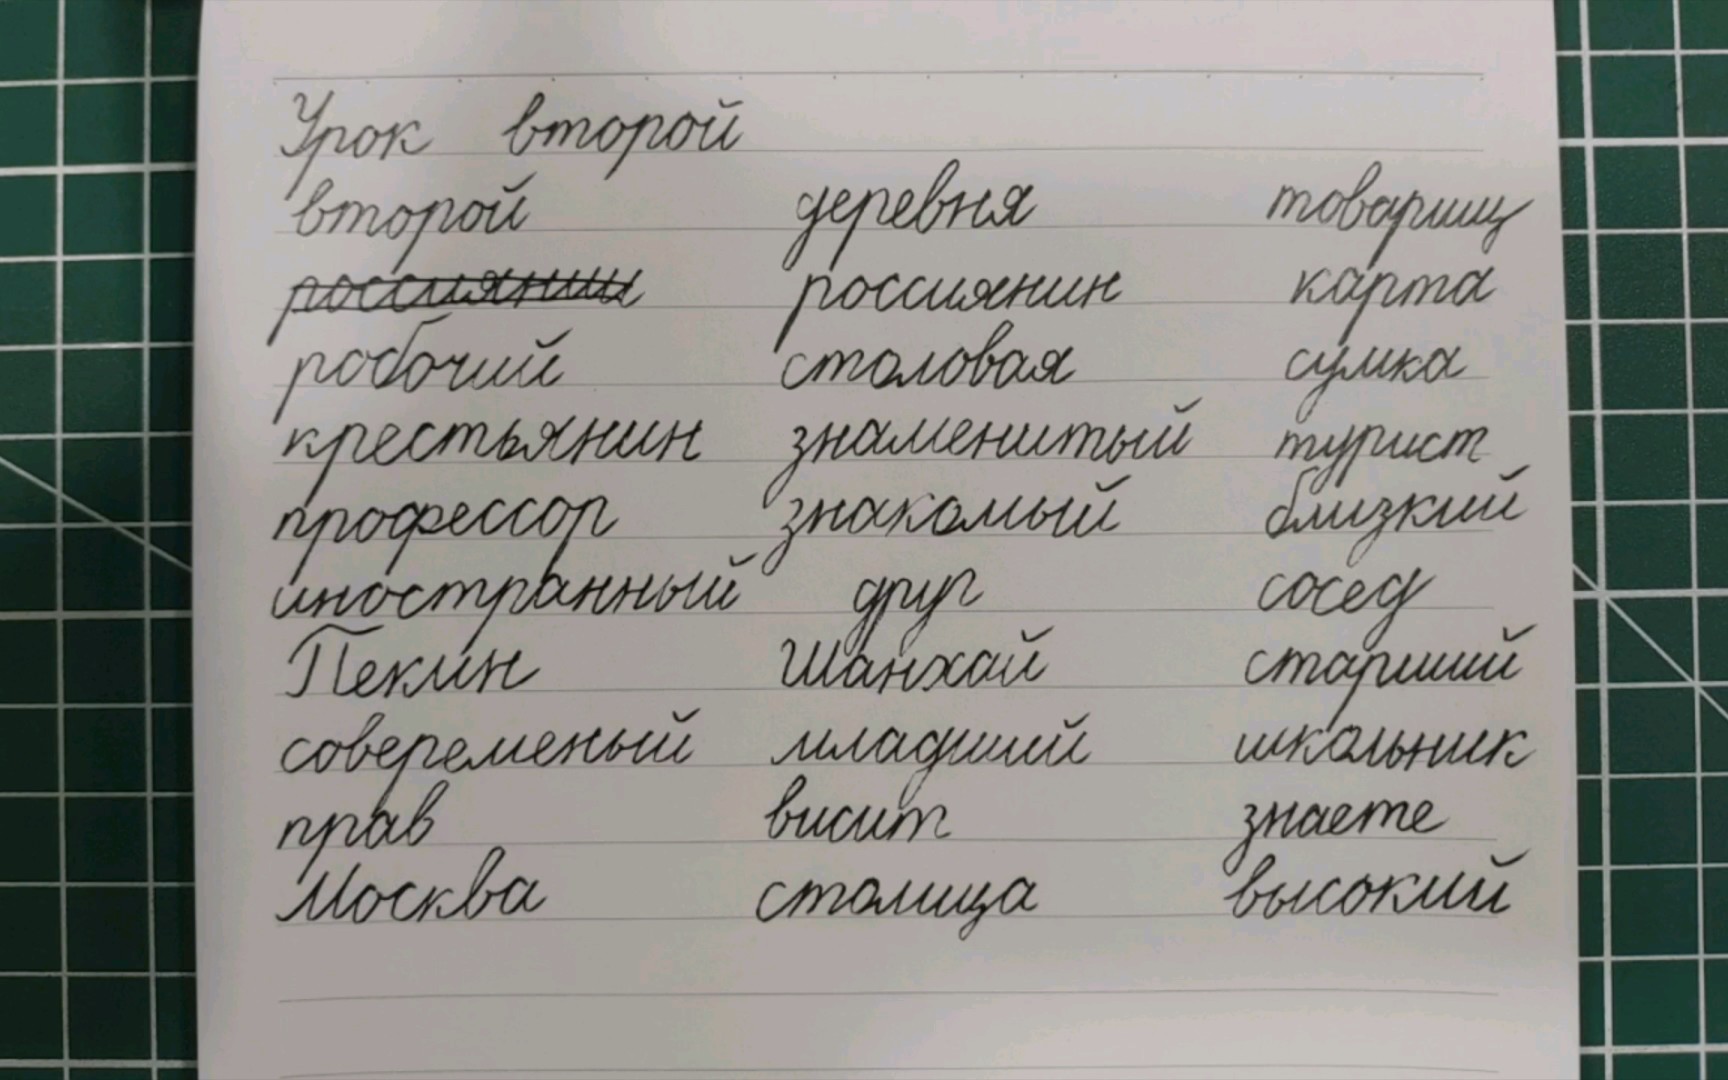 Урок второй
второй деревня товарищ
россиянин карта
робочий столовая сумка
крестьянин знаменитый турист
профессор знакомый близкий
иностранный друг сосед
Пекин Шанхай старший
совеременый младший школьник
прав висит знаете
Москва столица высокий